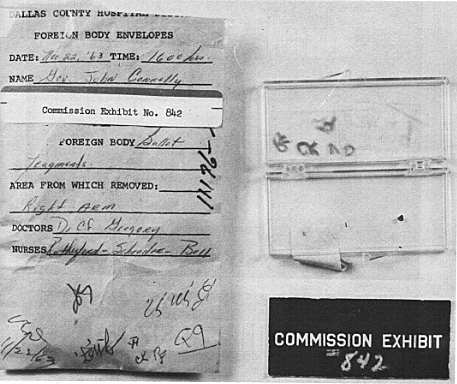 DALLAS COUNTY HOSPITAL
FOREIGN BODY ENVELOPES
DATE: Nov 22, '63 TIME: 1600 hrs.
NAME Gov. John Connally
Commission Exhibit No. 842
FOREIGN BODY Bullet
fragments.
AREA FROM WHICH REMOVED:
Right Arm
DOCTORS Dr. C.F. Gregory
NURSES Rutherford - Schrader - Bell
11/22/63
Q9
COMMISSION EXHIBIT
842